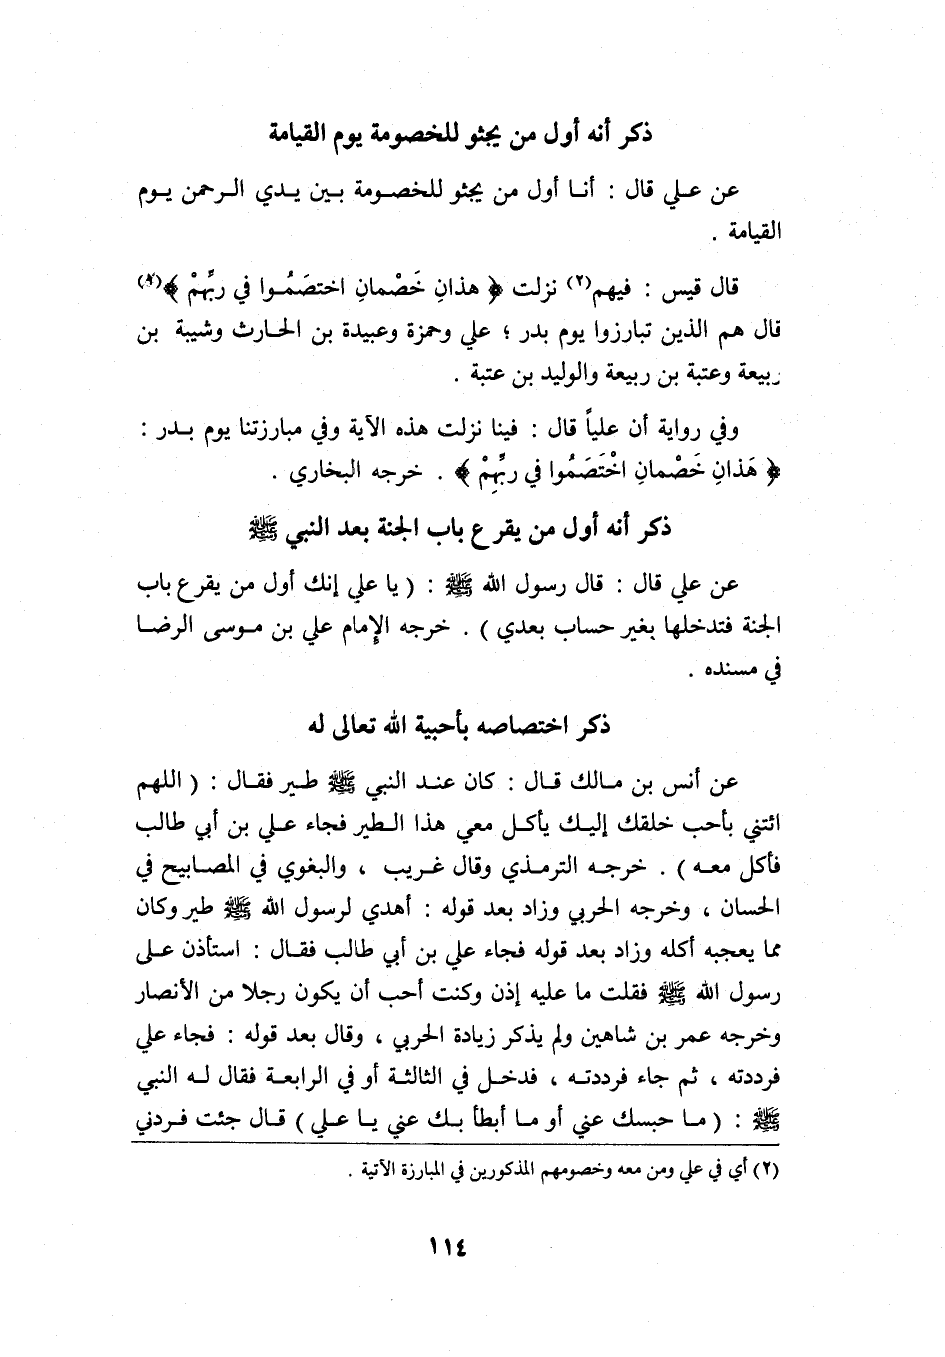 ذكر أنه أول من يجثو للخصومة يوم القيامة
عن علي قال : أنا أول من يجثو للخصومة بين يدي الرحمن يوم
القيامة .
قال قيس : فيهم(٢) نزلت ﴿ هذانِ خَصْمانِ اختصَمُوا في ربِّهِمْ ﴾
قال هم الذين تبارزوا يوم بدر ؛ علي وحمزة وعبيدة بن الحارث وشيبة بن
ربيعة وعتبة بن ربيعة والوليد بن عتبة .
وفي رواية أن علياً قال : فينا نزلت هذه الآية وفي مبارزتنا يوم بدر :
﴿ هَذانِ خَصْمانِ اخْتَصَمُوا في ربِّهِمْ ﴾ . خرجه البخاري .
ذكر أنه أول من يقرع باب الجنة بعد النبي ﷺ
عن علي قال : قال رسول الله ﷺ : ( يا علي إنك أول من يقرع باب
الجنة فتدخلها بغير حساب بعدي ) . خرجه الإمام علي بن موسى الرضا
في مسنده .
ذكر اختصاصه بأحبية الله تعالى له
عن أنس بن مالك قال : كان عند النبي ﷺ طير فقال : ( اللهم
ائتني بأحب خلقك إليك يأكل معي هذا الطير فجاء علي بن أبي طالب
فأكل معه ) . خرجه الترمذي وقال غريب ، والبغوي في المصابيح في
الحسان ، وخرجه الحربي وزاد بعد قوله : أهدي لرسول الله ﷺ طير وكان
مما يعجبه أكله وزاد بعد قوله فجاء علي بن أبي طالب فقال : استأذن على
رسول الله ﷺ فقلت ما عليه إذن وكنت أحب أن يكون رجلا من الأنصار
وخرجه عمر بن شاهين ولم يذكر زيادة الحربي ، وقال بعد قوله : فجاء علي
فرددته ، ثم جاء فرددته ، فدخل في الثالثة أو في الرابعة فقال له النبي
ﷺ : ( ما حبسك عني أو ما أبطأ بك عني يا علي ) قال جئت فردني
(٢) أي في علي ومن معه وخصومهم المذكورين في المبارزة الآتية .
١١٤